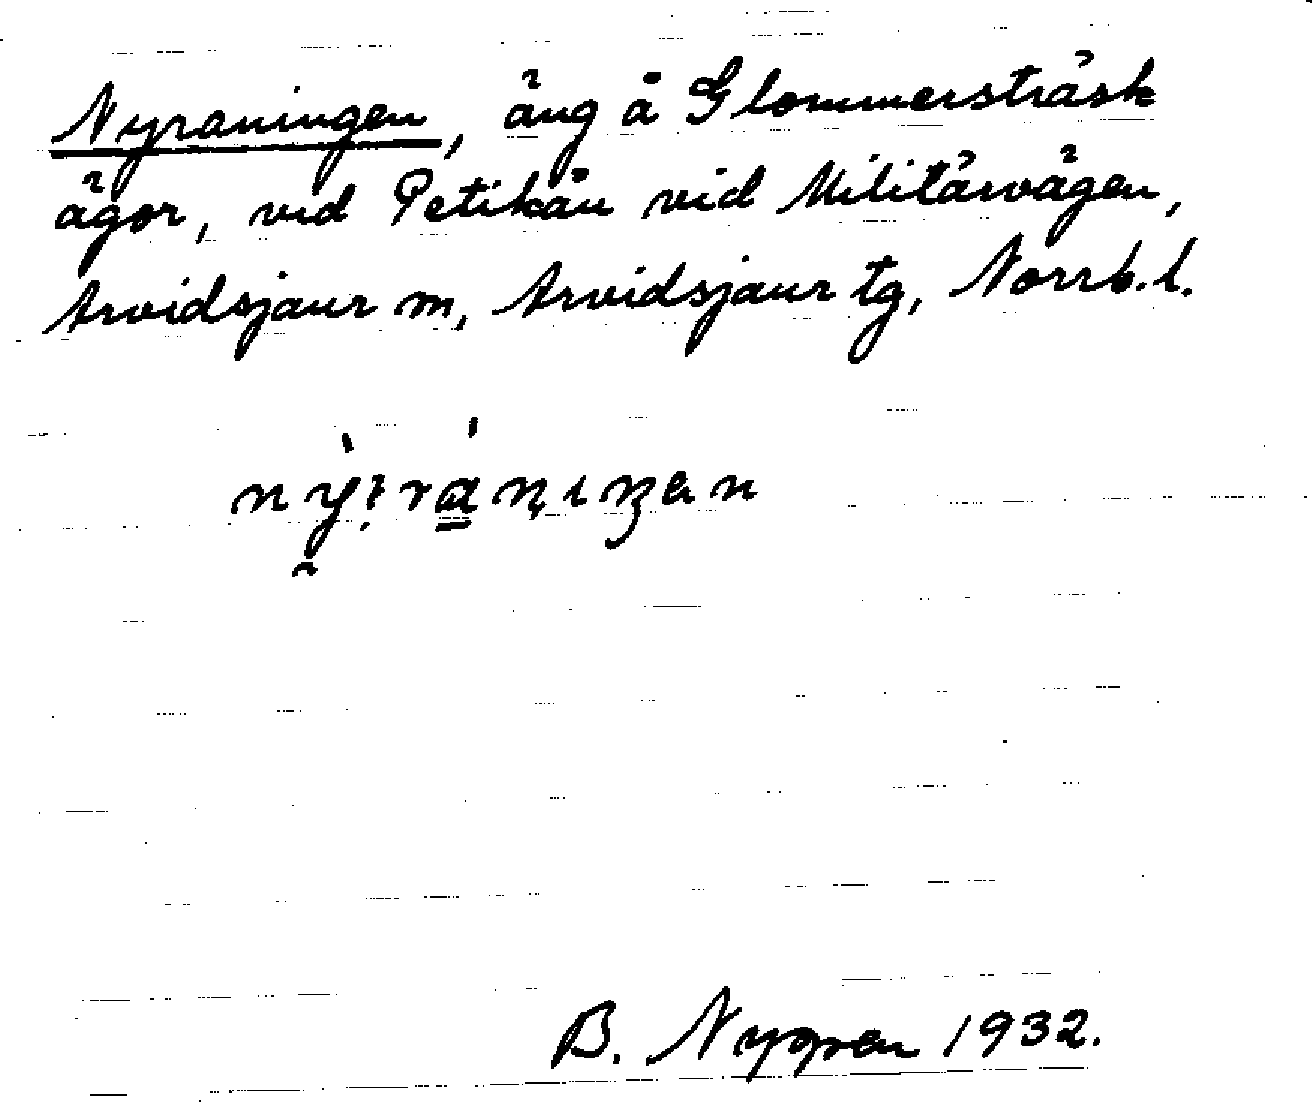 Nyraningen, äng å Glommersträsk
ägor, vid Petikån vid Militärvägen,
Arvidsjaur m, Arvidsjaur tg, Norrb. l.
B. Nygren 1932.